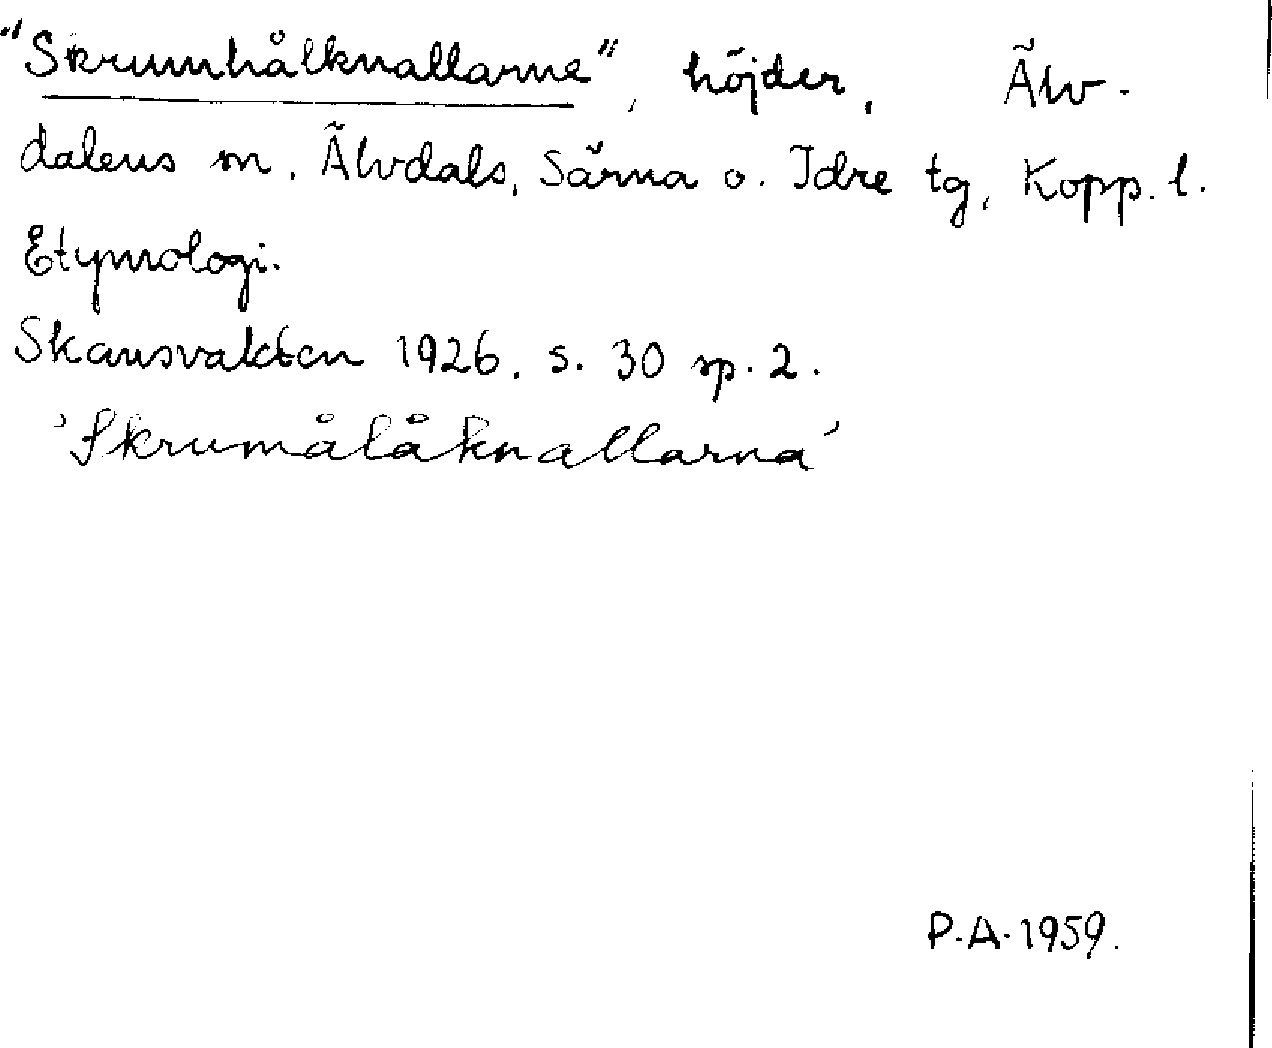 "Skrumhålknallarne", höjder, Älv-
dalens m, Älvdals, Särna o. Idre tg, Kopp. l.
Etymologi.
Skansvakten 1926, s. 30 sp. 2.
'Skrumålåknallarna'
P.A. 1959.